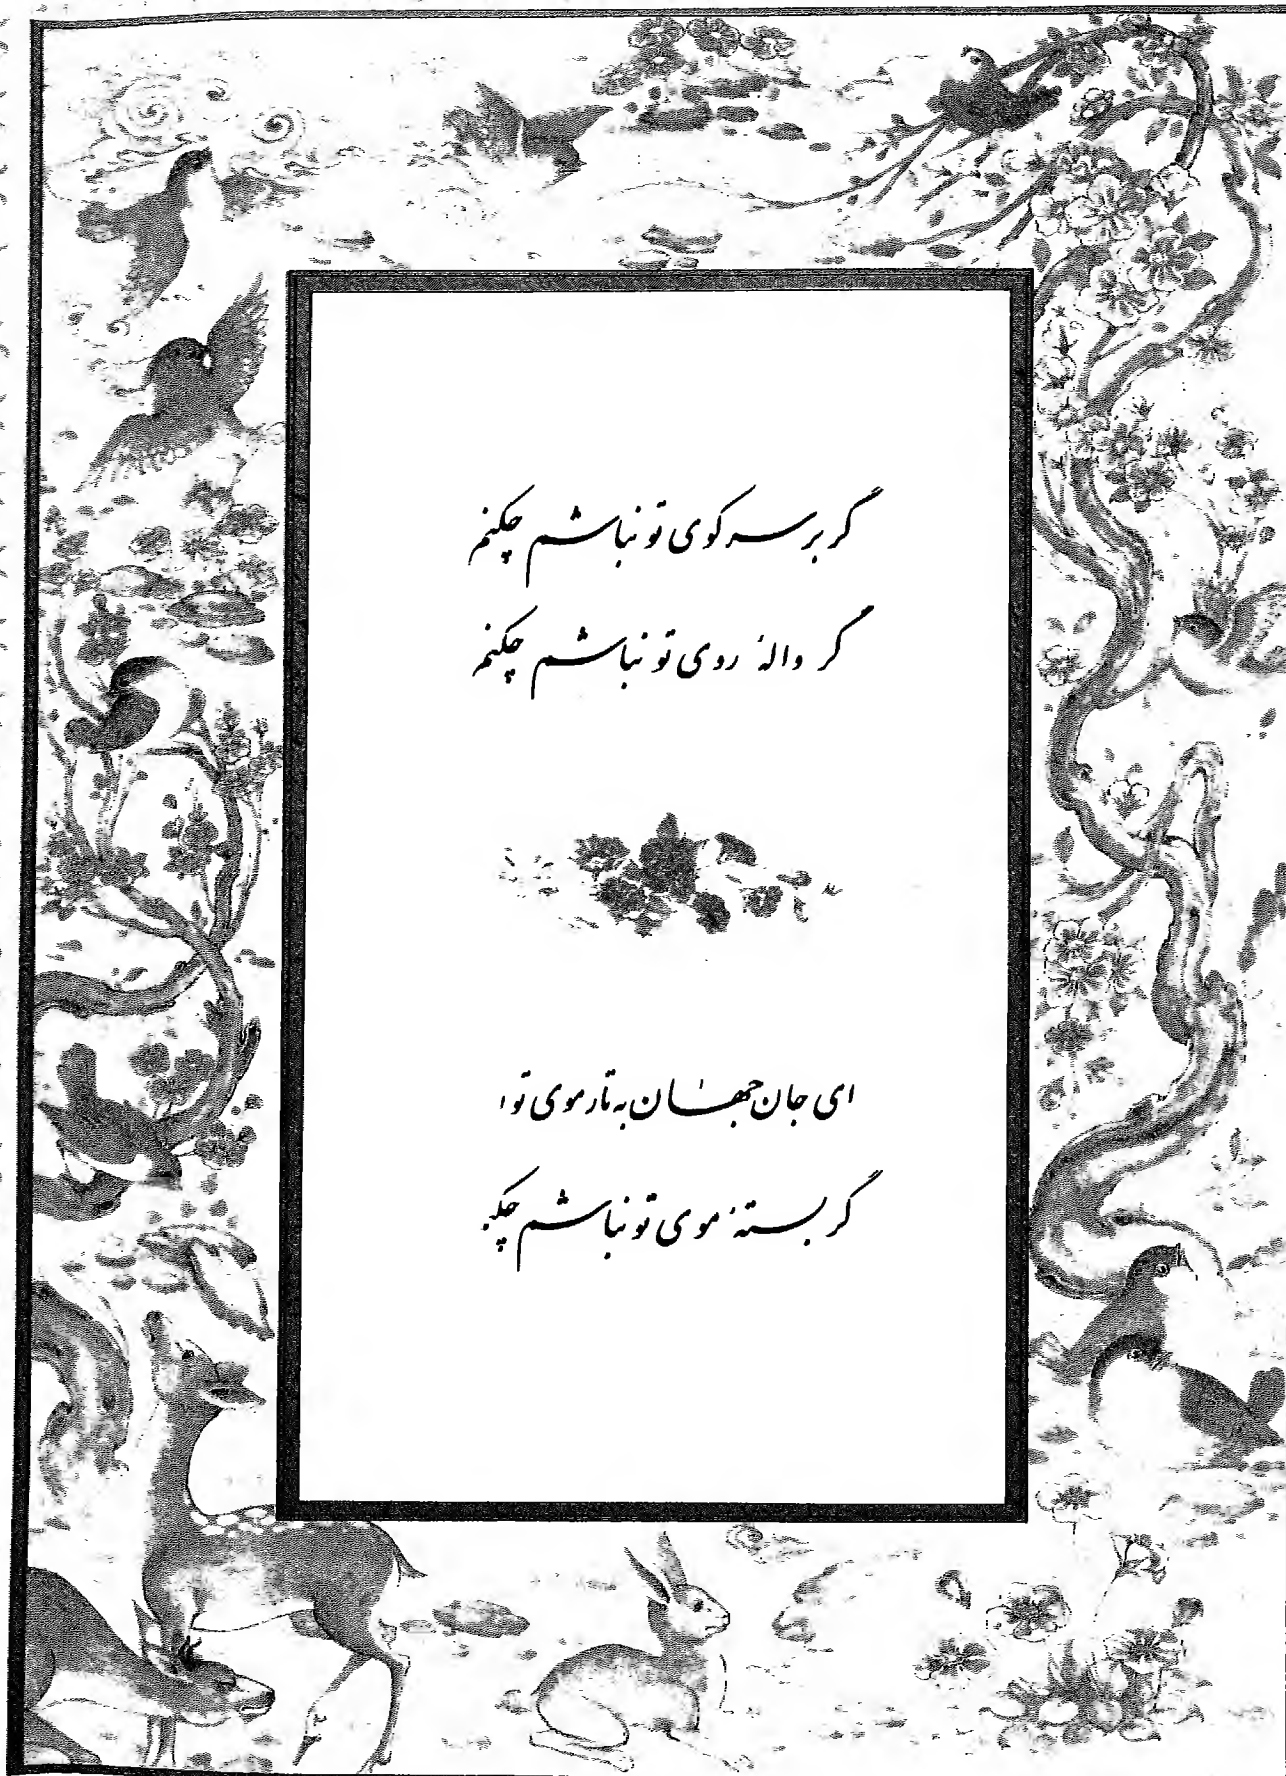 گر بر سر کوی تو نباشم چکنم
گر والهٔ روی تو نباشم چکنم
ای جان جهان به تار موی تو ا
گر بستهٔ موی تو نباشم چک